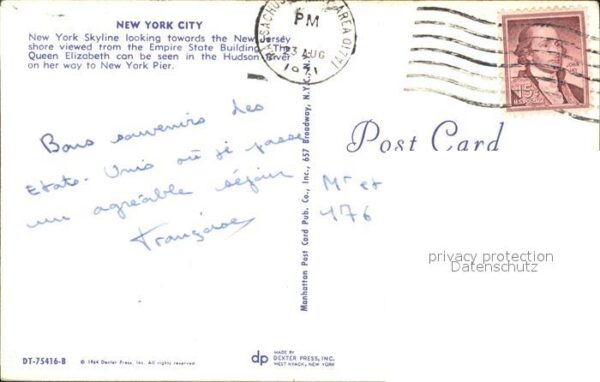 NEW YORK CITY
New York Skyline looking towards the New Jersey
shore viewed from the Empire State Building. The
Queen Elizabeth can be seen in the Hudson River
on her way to New York Pier.
PM
23 AUG
1971
15¢
Bons souvenirs des
Etats-Unis où je passe
un agréable séjour
Françoise
Manhattan Post Card Pub. Co., Inc., 657 Broadway, N.Y.C., N.Y.
Post Card
Mr et
476
privacy protection
Datenschutz
DT-75416-B
© 1964 Dexter Press, Inc. All rights reserved
dp
MADE BY
DEXTER PRESS, INC.
WEST NYACK, NEW YORK